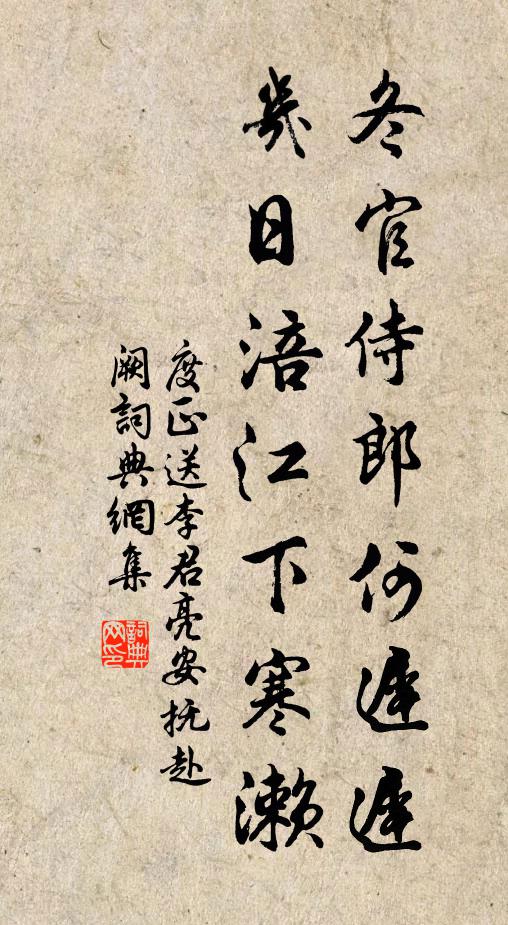 冬官侍郎何遲遲
幾日涪江下寒瀨
度正送李君亮安抚赴
阙詞典網集
詞典网印